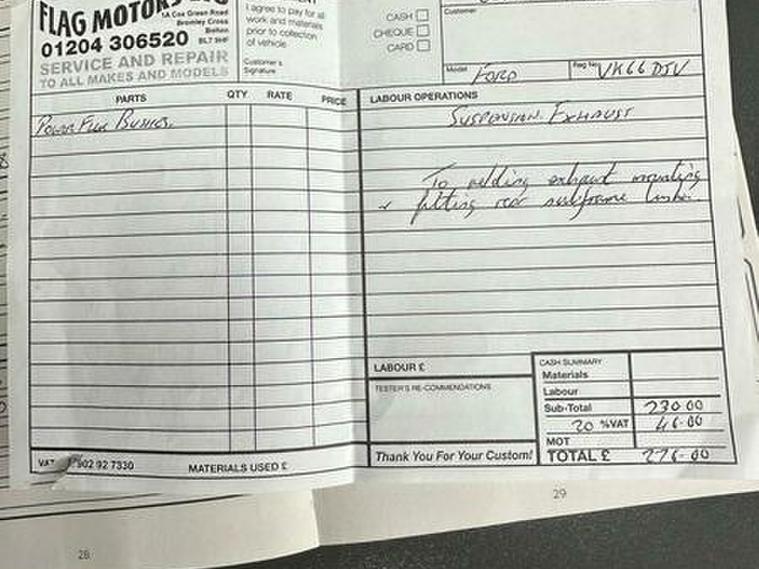 FLAG MOTORS
1A Cox Green Road
Bromley Cross
Bolton
BL7 9HF
01204 306520
SERVICE AND REPAIR
TO ALL MAKES AND MODELS
I agree to pay for all
work and materials
prior to collection
of vehicle
Customer's
Signature
CASH
CHEQUE
CARD
Customer
Model Ford
Reg No VK66 DJV
PARTS QTY RATE PRICE
Power Flex Bushes.
LABOUR OPERATIONS
Suspension. Exhaust
To welding exhaust mounting
fitting rear subframe bushes.
LABOUR £
TESTER'S RECOMMENDATIONS
Thank You For Your Custom!
CASH SUMMARY
Materials
Labour
Sub-Total 230.00
20 %VAT 46.00
MOT
TOTAL £ 276-00
VAT 902 92 7330
MATERIALS USED £
28
29